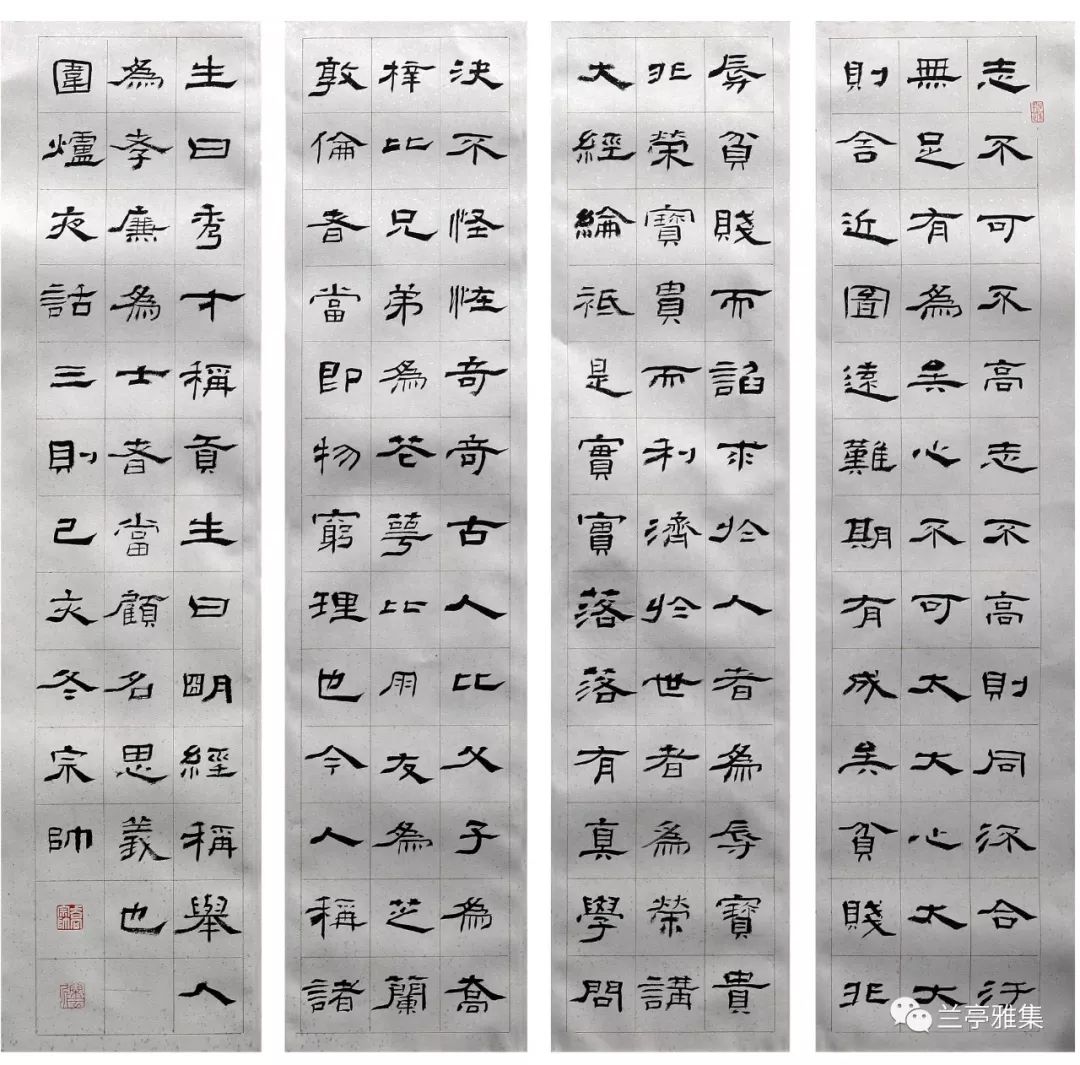 志不可不高志不高則同流合汙
無足有為矣心不可太大心太大
則舍近圖遠難期有成矣貧賤非
辱貧賤而諂求於人者為辱寶貴
非榮寶貴而利濟於世者為榮講
大經綸祗是實實落落有真學問
決不怪怪奇奇古人比父子為喬
梓比兄弟為花萼比朋友為芝蘭
敦倫者當即物窮理也今人稱諸
生曰秀才稱貢生曰明經稱舉人
為孝廉為士者當顧名思義也
圍爐夜話三則己亥冬宗帥
兰亭雅集